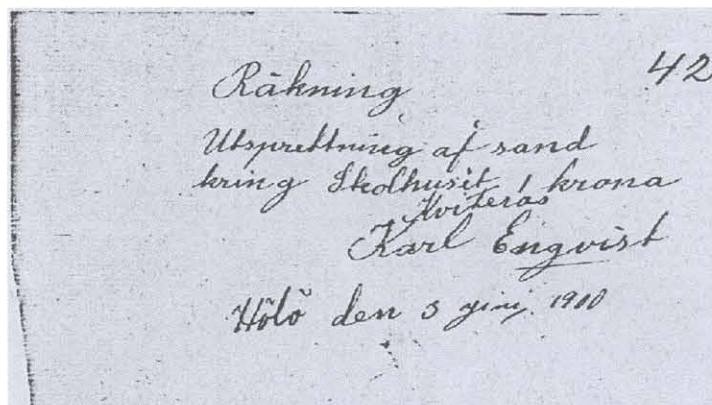 42
Räkning
Utsprettning af sand
kring Skolhusit 1 krona
Kviteras
Karl Engvist
Hölö den 3 yini 1910